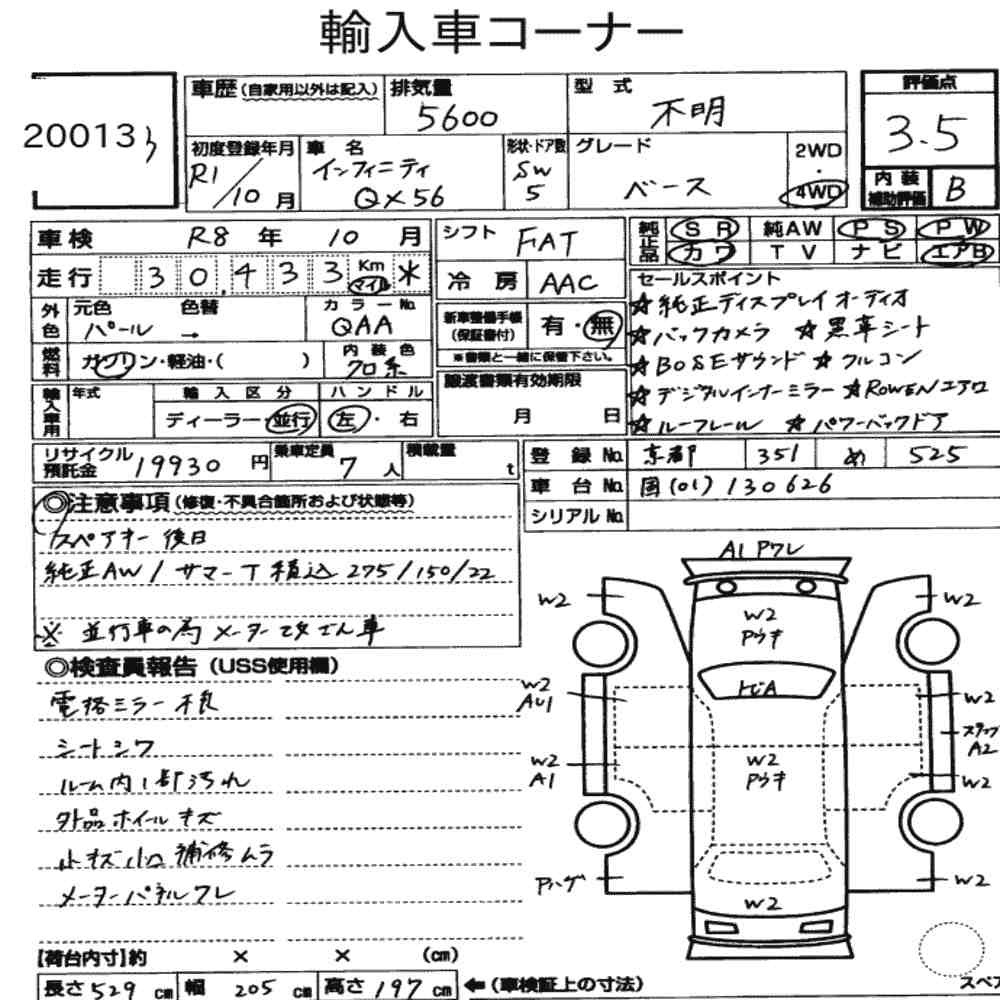 輸入車コーナー
20013
車歴(自家用以外は記入)
排気量
5600
型式
不明
評価点
3.5
初度登録年月
R1/10月
車名
インフィニティ
QX56
形状・ドア数
SW
5
グレード
ベース
2WD
・
4WD
内装補助評価
B
車検 R8年 10月
シフト FAT
純正品 SR 純AW PS PW
カワ TV ナビ エアB
走行 30,433 Km マイル *
冷房 AAC
セールスポイント
☆純正ディスプレイオーディオ
☆バックカメラ ☆黒革シート
☆BOSEサウンド ☆フルコン
☆デジタルインナーミラー ☆ROWENエアロ
☆ルーフレール ☆パワーバックドア
外色 元色 パール
色替 →
カラーNo.
QAA
新車整備手帳(保証書付) 有・無
※書類と一緒に保管下さい。
燃料 ガソリン・軽油・( )
内装色
クロ系
譲渡書類有効期限
月 日
輸入車用 年式
輸入区分
ディーラー・並行
ハンドル
左・右
リサイクル預託金 19930円
乗車定員 7人
積載量 t
登録No. 京都 351 め 525
車台No. 国(01)130626
シリアルNo.
◎注意事項(修復・不具合箇所および状態等)
スペアキー後日
純正AW/サマーT積込 275/150/22
※ 並行車の為メーター改ざん車
◎検査員報告(USS使用欄)
電格ミラー不良
シートシワ
ルーム内1部汚れ
外品ホイールキズ
小キズ小凹補修ムラ
メーターパネルワレ
【荷台内寸】約 × × (cm)
長さ529cm 幅205cm 高さ197cm
←(車検証上の寸法)
A1 Pワレ
W2
W2
W2
Pウキ
トビA
W2
AU1
W2
ステップ
A2
W2
A1
W2
Pウキ
W2
Pハゲ
W2
W2
スペア